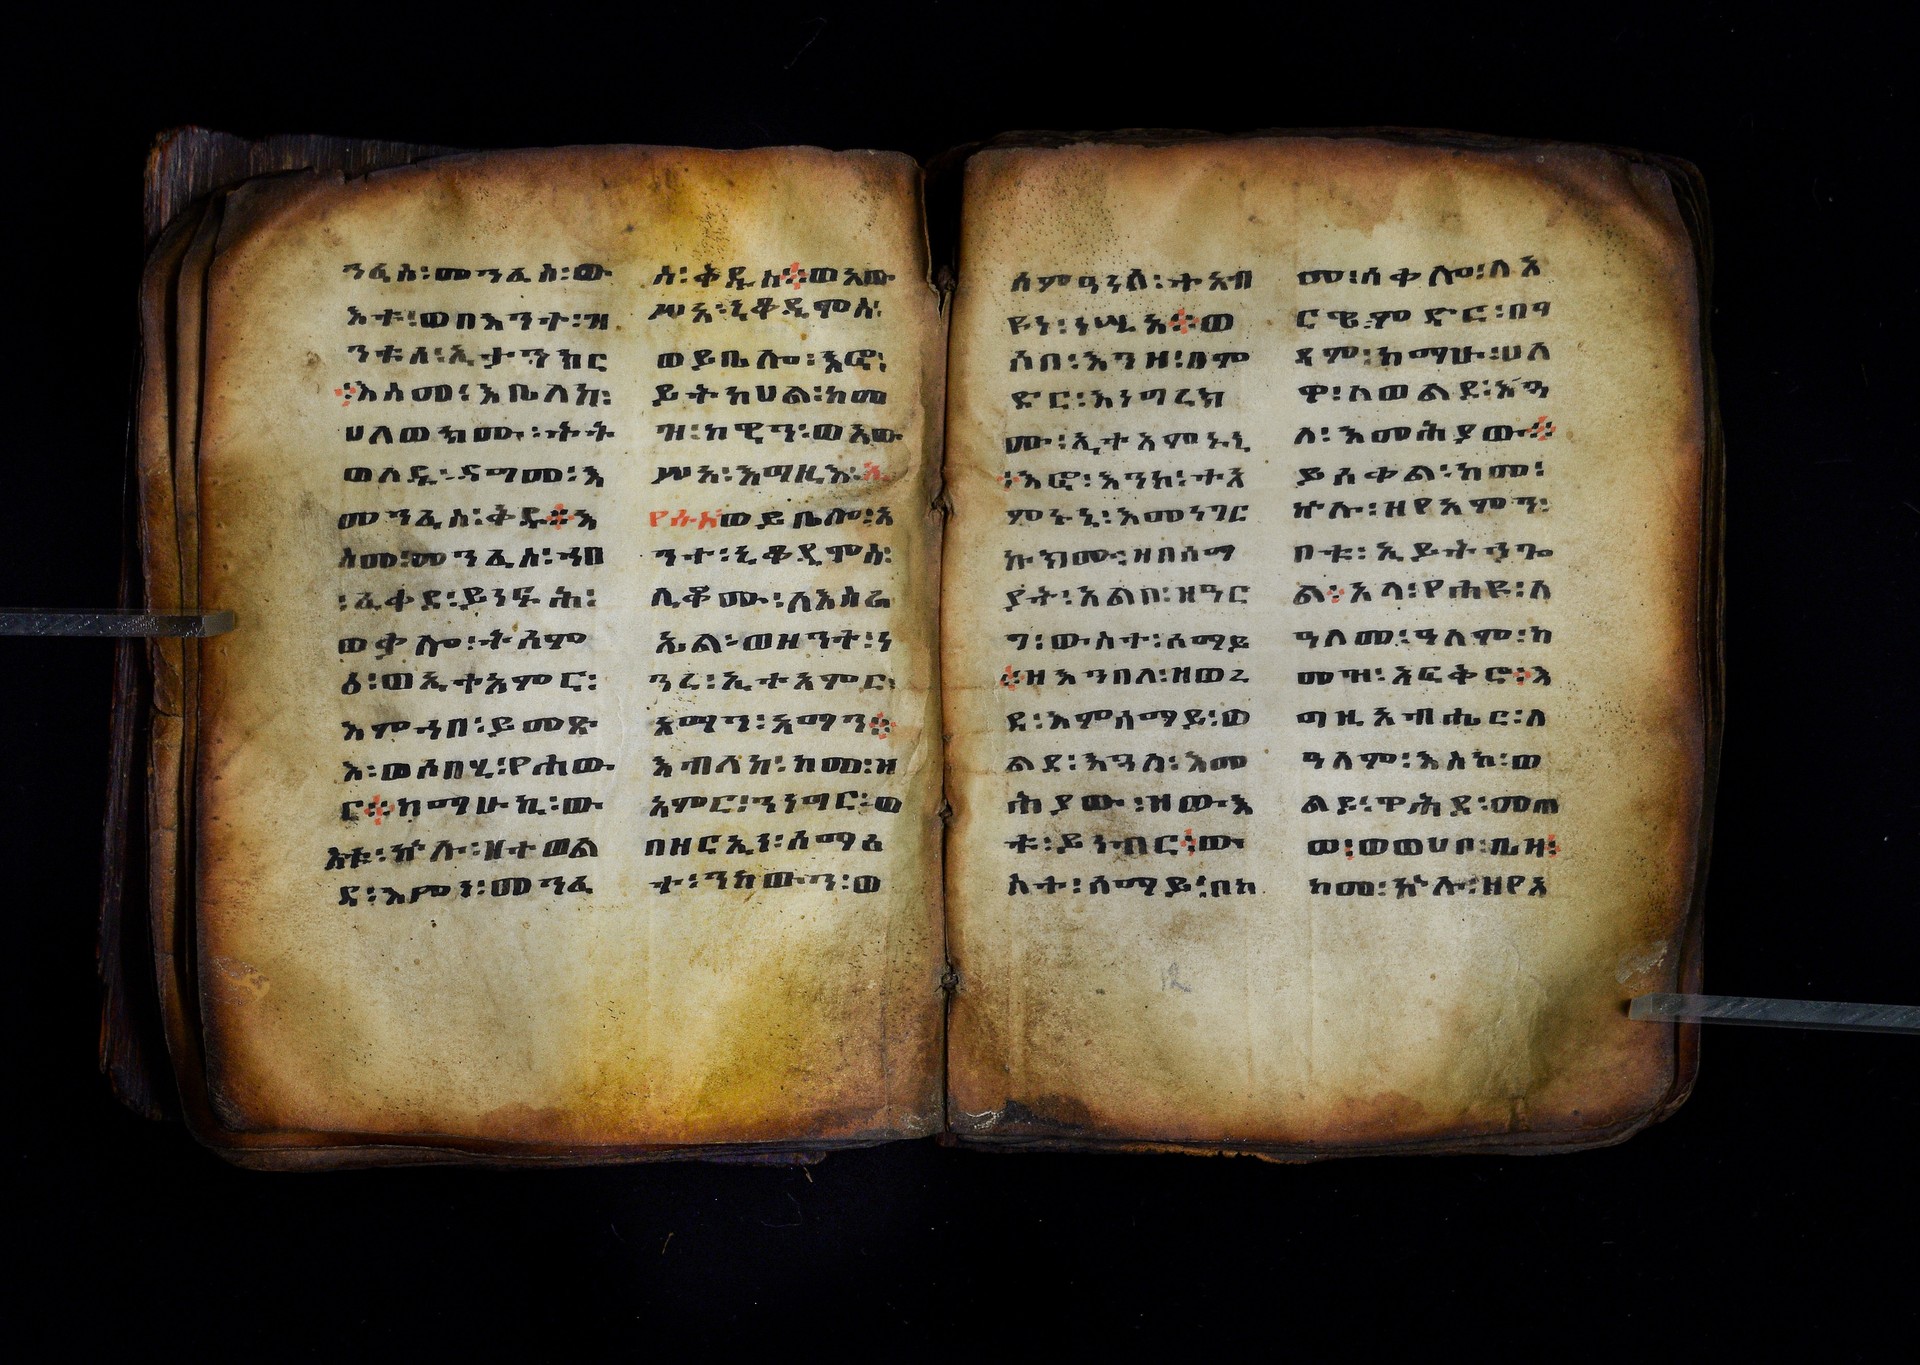 ንፈስ፡መንፈስ፡ው
እቱ፡ወበእንተ፡ዝ
ንቱ፡ለ፡ኢታንክር
፨እስመ፡እቤለከ፡
ሀለወክሙ፡ትት
ወለዱ፡ዳግመ፡እ
መንፈስ፡ቅዱ፨እ
ስመ፡መንፈስ፡ኀበ
፡ፈቀደ፡ይነፍሕ፡
ወቃሎ፡ትሰም
ዕ፡ወኢተአምር፡
እምኀበ፡ይመጽ
እ፡ወሰበሂ፡የሐውር
ር፨ከማሁኬ፡ው
እቱ፡ኵሉ፡ዘተወል
ደ፡እምነ፡መንፈ
ስ፡ቅዱስ፨ወአው
ሥአ፡ኒቆዲሞስ፡
ወይቤሎ፡እፎ፡
ይትከሀል፡ከመ
ዝ፡ከዊን፡ወአው
ሥአ፡እግዚእ፡ኢ
የሱስወይቤሎ፡አ
ንተ፡ኒቆዲሞስ፡
ሊቆሙ፡ለእስራ
ኤል፡ወዘንተ፡ነ
ገረ፡ኢተአምር፡
አማን፡አማን፨
እብለከ፡ከመ፡ዘ
አምር፡ንነግር፡ወ
በዘርኢነ፡ሰማዕ
ተ፡ንከውን፡ወ
ስምዓነሰ፡ተአብ
ዩነ፡ነሢአ፨ወ
ሶበ፡እንዘ፡በም
ድር፡እነግረክ
ሙ፡ኢተአምኑኒ
፨እፎ፡እንከ፡ተአ
ምኑኒ፡እመነገር
ኩክሙ፡ዘበሰማ
ያት፡አልቦ፡ዘዓር
ግ፡ውስተ፡ሰማይ
፨ዘእንበለ፡ዘወረ
ደ፡እምሰማይ፡ወ
ልደ፡እጓለ፡እመ
ሕያው፡ዘውእ
ቱ፡ይነብር፡ው
ስተ፡ሰማይ፡በከ
መ፡ሰቀሎ፡ለአ
ርዌ፡ምድር፡በገ
ዳም፡ከማሁ፡ሀለ
ዎ፡ለወልደ፡እጓ
ለ፡እመሕያው፨
ይሰቀል፡ከመ፡
ኵሉ፡ዘየአምን፡
ቦቱ፡ኢይትኀጐ
ል፨አላ፡የሐዩ፡ለ
ዓለመ፡ዓለም፡ከ
መዝ፡አፍቅሮ፡እ
ግዚአብሔር፡ለ
ዓለም፡እስከ፡ወ
ልዶ፡ዋሕደ፡መጠ
ወ፡ወወሀበ፡ቤዛ፡
ከመ፡ኵሉ፡ዘየአ
12